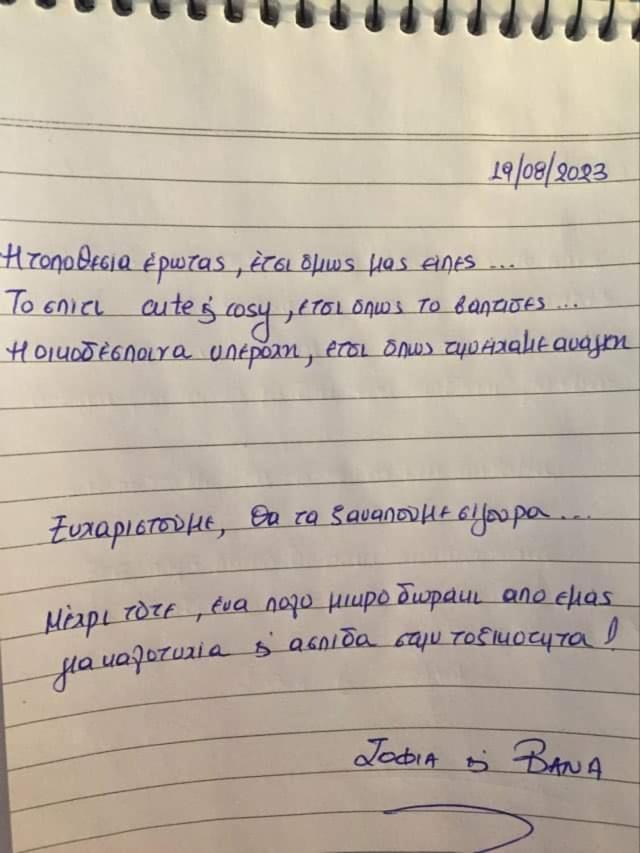 19/08/2023
Η τοποθεσία έρωτας, έτσι όμως μας είπες...
Το σπίτι cute & cosy, έτσι οπως το βαπτισες...
Η οικοδέσποινα υπέροχη, έτσι όπως την είχαμε αναγκη
Ευχαριστούμε, θα τα ξαναπούμε σίγουρα...
Μέχρι τότε, ένα πολυ μικρο δωρακι απο εμας
για καλοτυχία & ασπίδα στην τοξικοτητα!
ΣΟΦΙΑ & ΒΑΝΑ